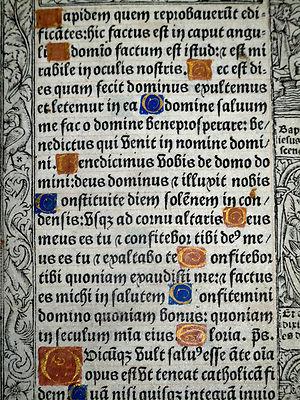 Lapidem quem reprobaverũt edi-
ficãtes: hic factus est in caput angu-
li A domĩo factum est istud: ⁊ est mi
rabile in oculis nostris. Hec est di-
es quam fecit dominus exultemus
et letemur in ea O domine salvum
me fac o domine bene prosperare: be/
nedictus qui venit in nomine domi
ni. Benedicimus vobis de domo do
mini: deus dominus ⁊ illuxit nobis
Constituite diem solẽnem in con/
densis: usqz ad cornu altaris Deus
meus es tu ⁊ confitebor tibi de⁹ me/
us es tu ⁊ exaltabo te Confitebor
tibi quoniam exaudisti me: ⁊ factus
es michi in salutem Confitemini
domino quoniam bonus: quoniam
in seculum mĩa eius Gloria. ps.
Quicũqz vult salv⁹ esse ãte oĩa
opus est vt teneat catholicã fi
dem Quã nisi quisqz integrã inuio
Bap
iesus
scen
Et